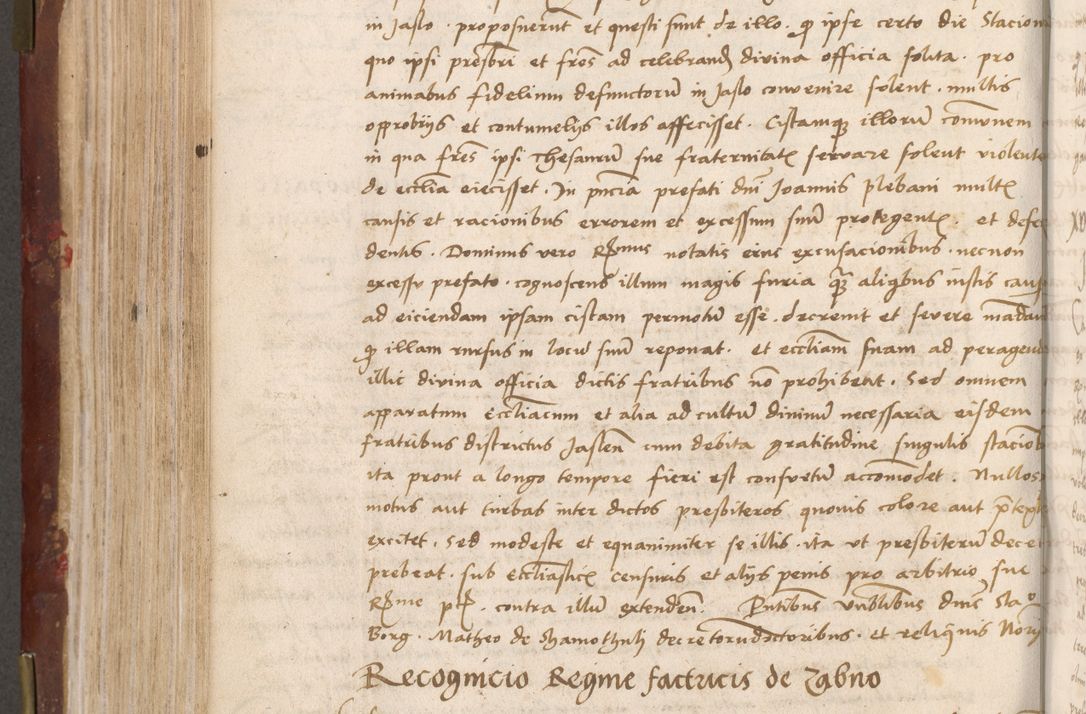 in Jaslo . proposuerunt et questi sunt de illo . qz ipse certo die Stacion
quo ipsi presbri et fres ad celebrand divina officia solita . pro
animabus fidelium defunctoru in Jaslo convenire solent . multis
opprobiijs et contumelijs illos affecisset . Cistamqz illoru comunem
in qua fres ipsi Thesauru sue fraternitatis servare solent violente
de ecclia eiecisset . In pncia prefati dni Joannis plebani multis
causis et racionibus errorem et excessum suu protegentis . et defe
dentis . Dominus vero Rmus notatis eius excusacionibus . necnon
excessu prefato . cognoscens illum magis furia qz aliqbus iustis causis
ad eiciendam ipsam cistam permotu esse . decrevit et severe mandavit
qz illam rursus in locu suu reponat . et eccliam suam ad peragend
illic divina officia dictis fratribus no prohibeat . Sed omnem
apparatum Eccliacum et alia ad cultu divinu necessaria eisdem
fratribus districtus Jaslen cum debita gratitudine singulis stacionib
ita prout a longo tempore fieri est consuetu accomodet . Nullos
motus aut turbas inter dictos presbiteros quovis colore aut pretextu
excitet . Sed modeste et equanimiter se illis . ita ut presbiteru decet
prebeat . sub Eccliasticis censuris et alijs penis pro arbitrio sue
Rme pt . contra illu extenden . Pntibus Unblibus dnis Sta
Borg . Matheo de Shamothuli decretorudoctoribus . et reliquis Nory
Recognicio Regine factricis de Zabno